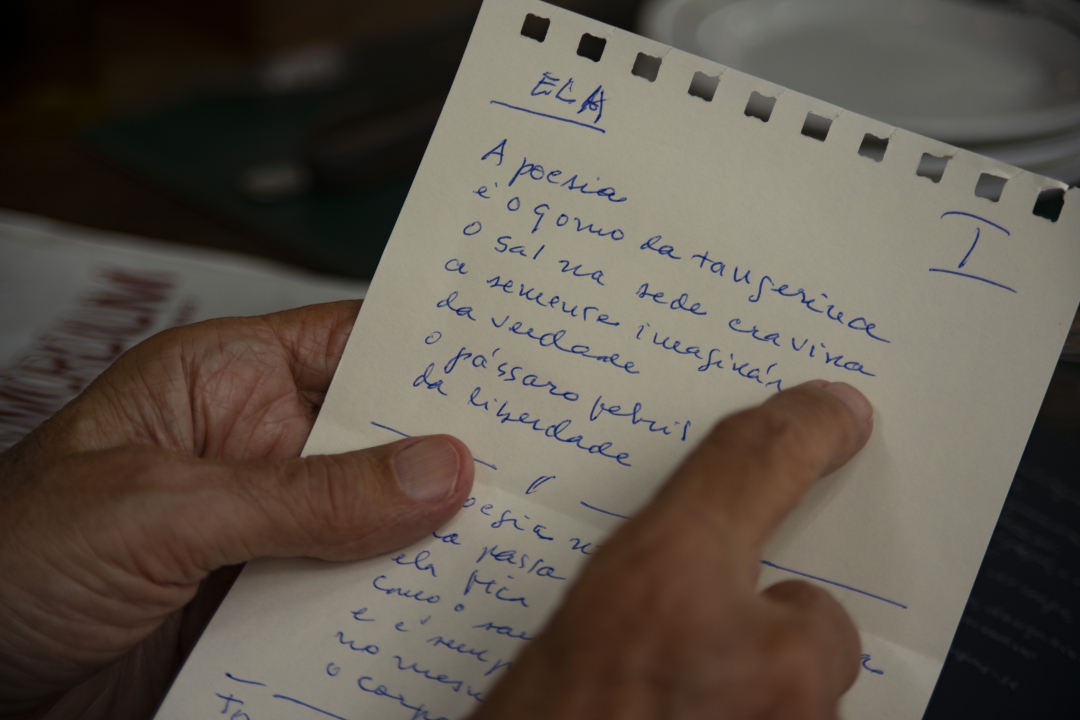 ELA
I
A poesia
é o gomo da tangerina
o sal na sede cravina
a semente imaginár
da verdade
o pássaro febril
da liberdade
oesia n
passa
ela fica
como o
e é semp
no mesm
o corp